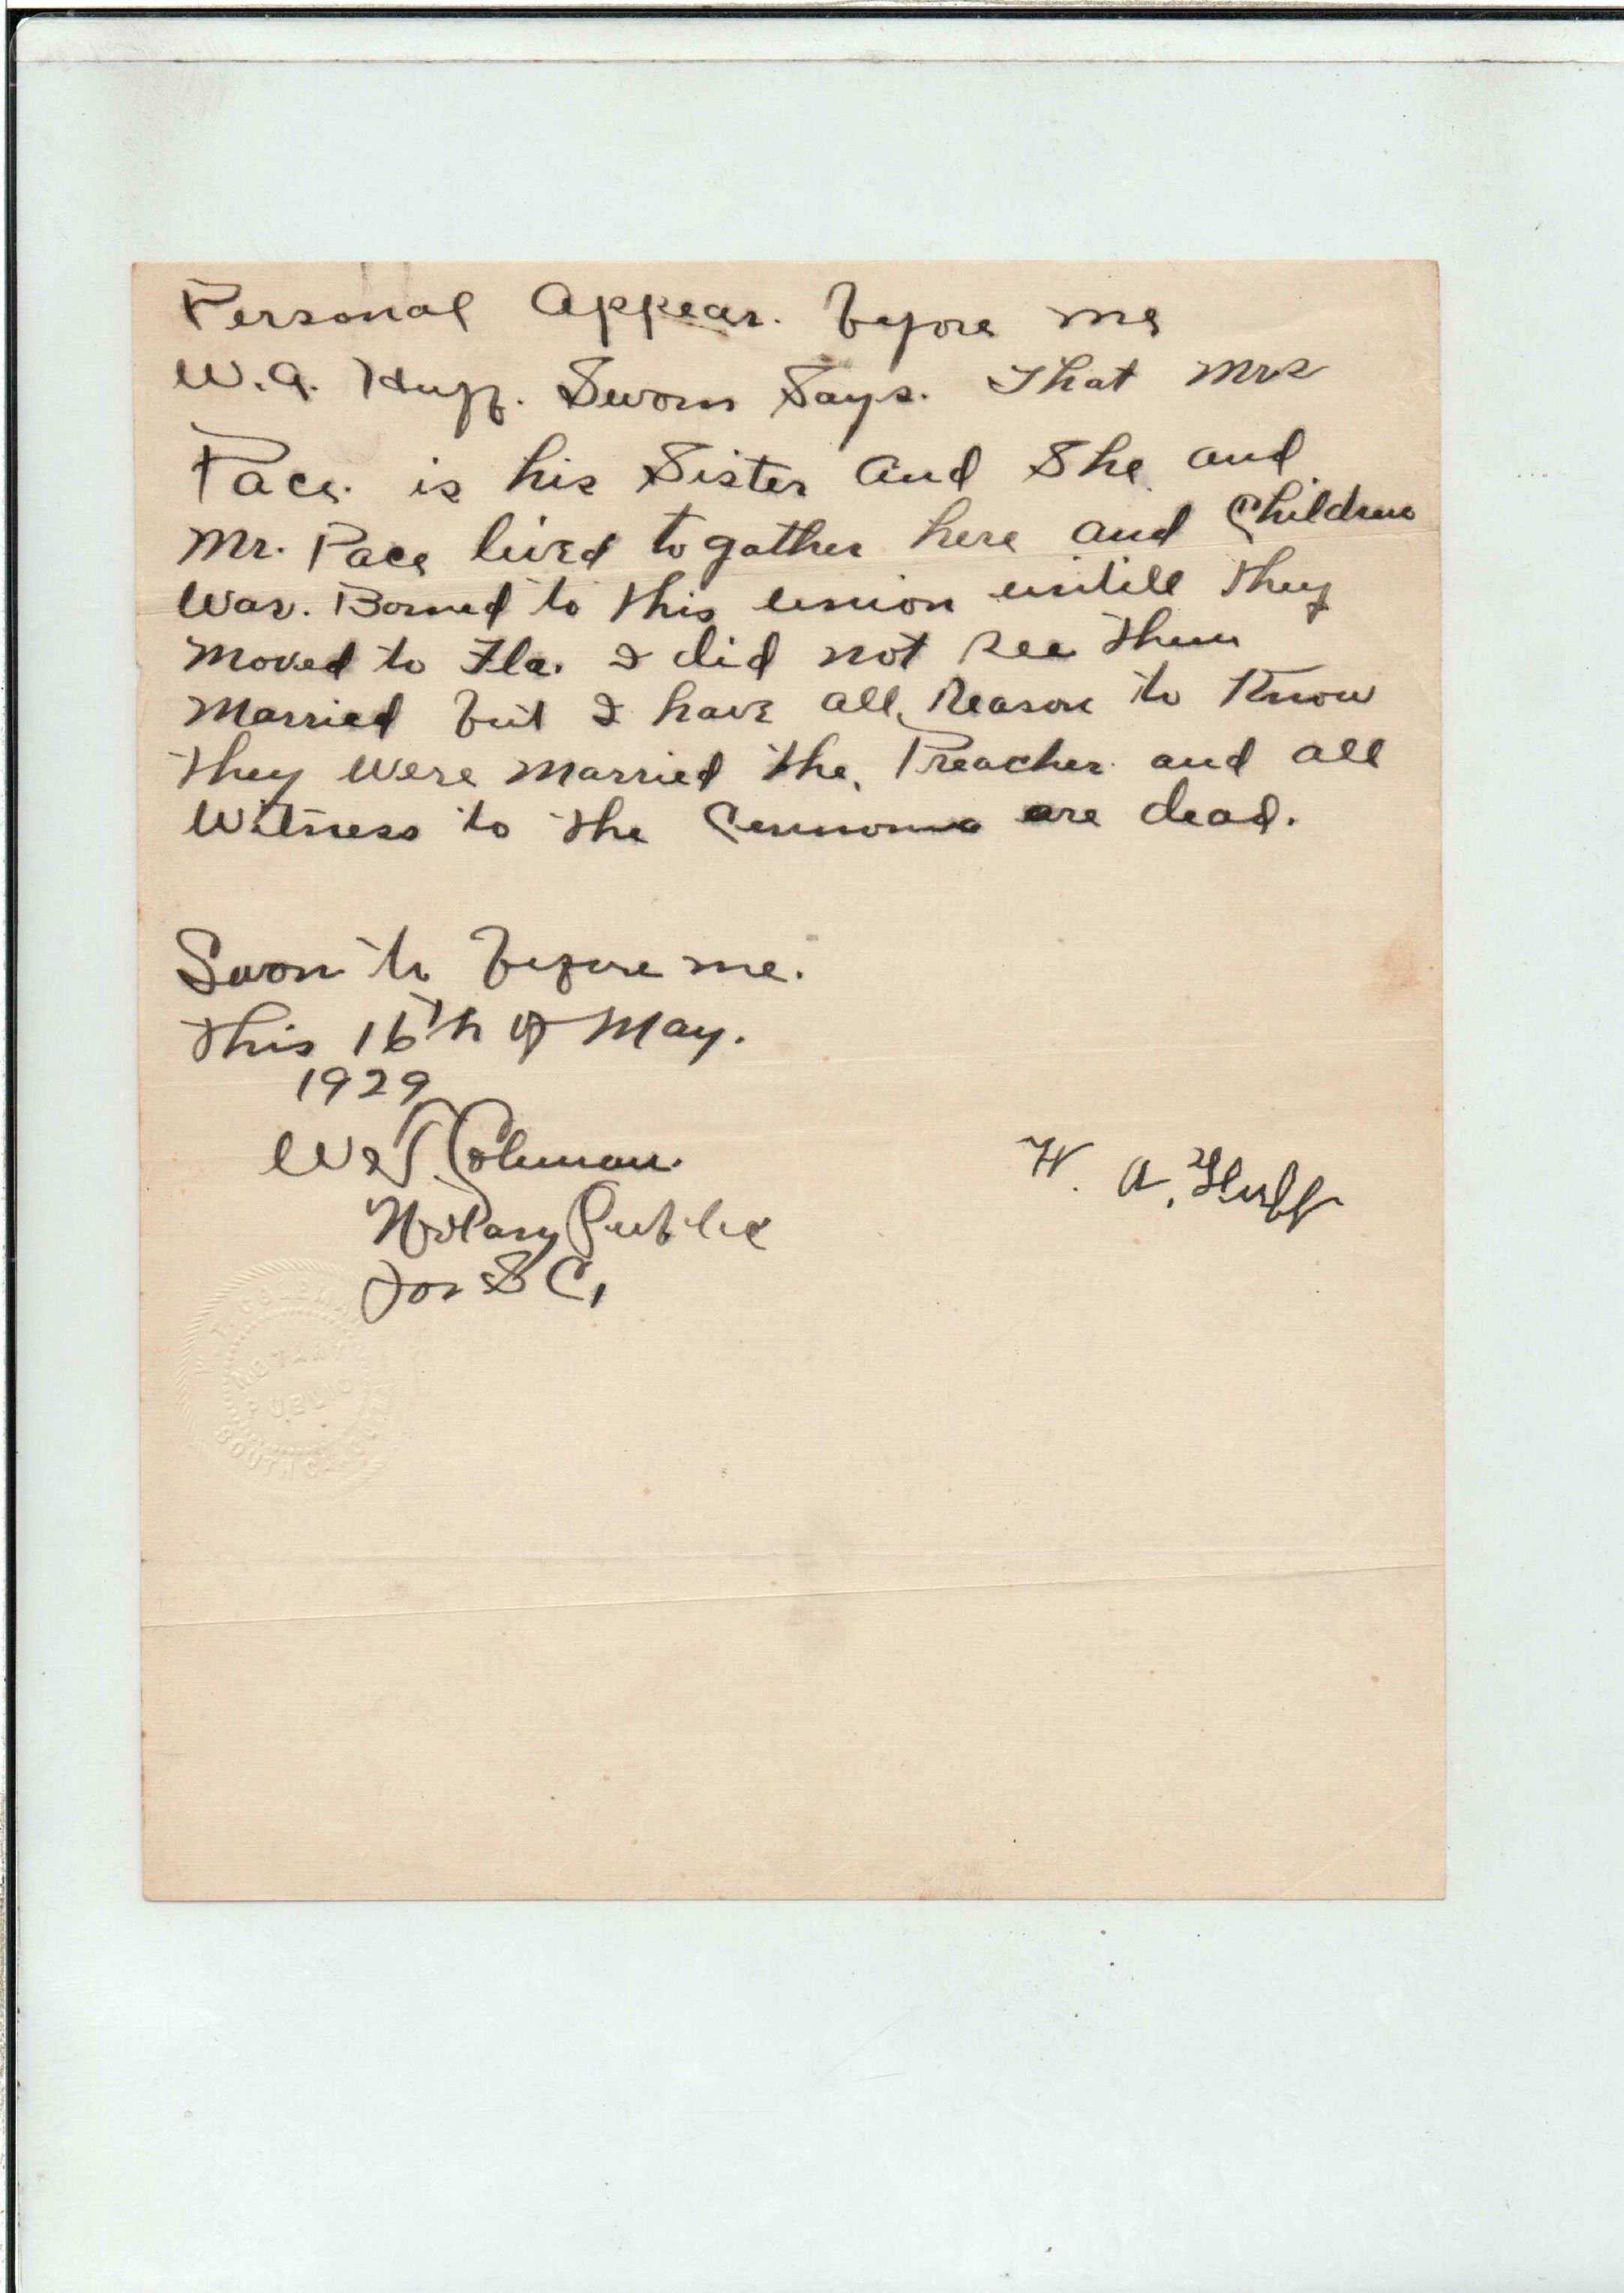 Personal Appear. before me
W.A. Huff. Sworn Says. That Mrs
Pace. is his Sister and She and
Mr. Pace lived to gather here and Children
War. Borned to this union untill they
moved to Fla. I did not see them
married but I have all Reason to Know
they were married the, Preacher and all
Witness to the are dead.
Sworn to before me.
This 16th of May.
1929
W T Coleman.
Notary Public
for S C,
W. A. Huff
T. COLEMAN
NOTARY
PUBLIC
SOUTH CAROLINA